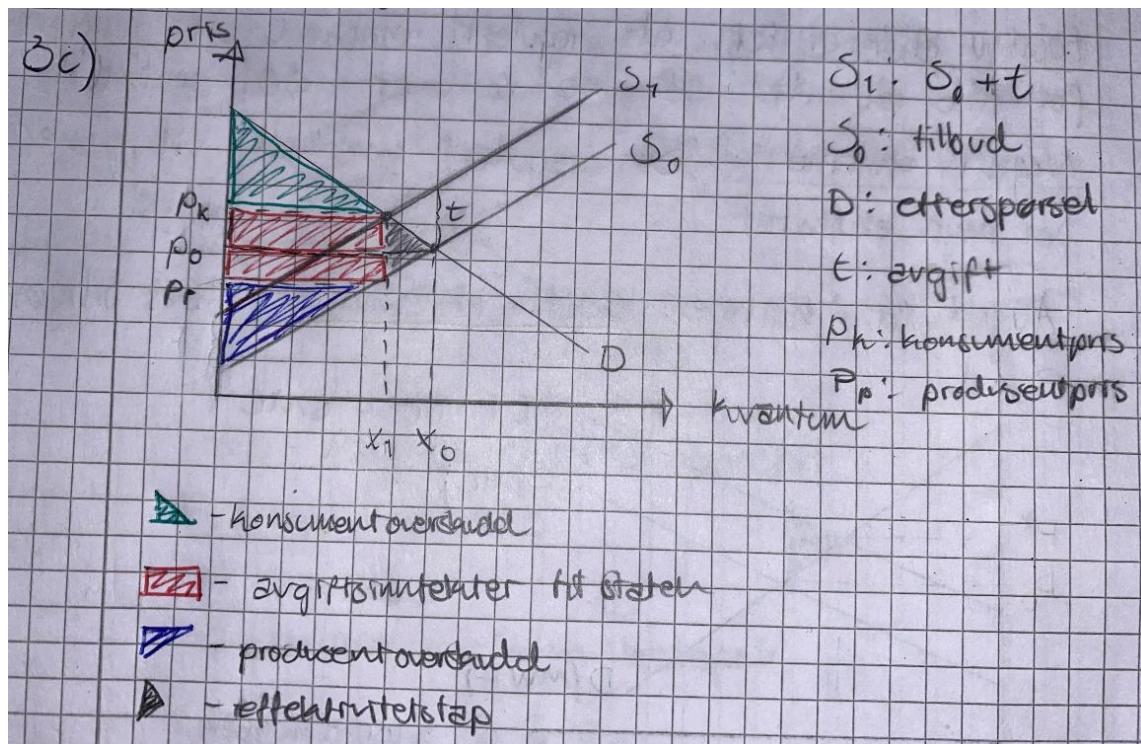 3c)
pris
S₁
S₀
t
Pk
P₀
Pp
D
kvantum
x₁ x₀
S₁: S₀ + t
S₀: tilbud
D: etterspørsel
t: avgift
Pk: konsumentpris
Pp: produsentpris
- konsumentoverskudd
- avgiftsinntekter til staten
- produsentoverskudd
- effektivitetstap